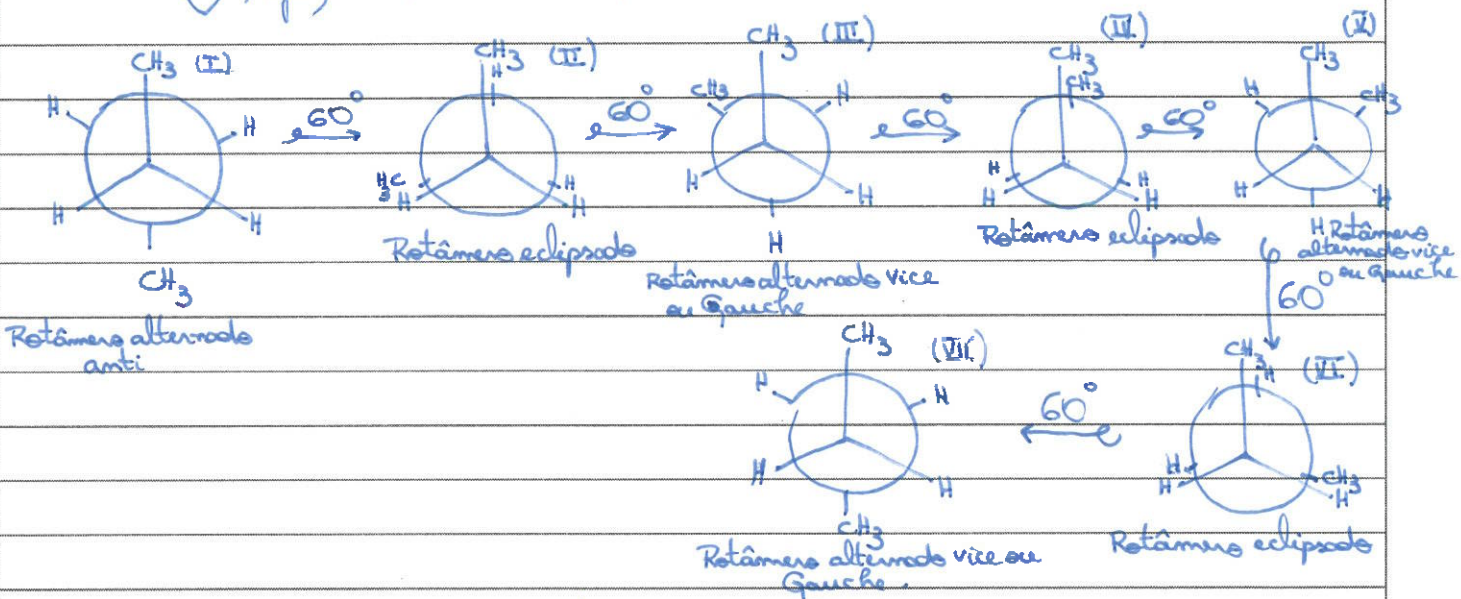 CH3 (I)
H
H
H
H
CH3
Rotâmero alternado
anti
60°
CH3 (II)
H
H3C
H
H
H
Rotâmero eclipsado
60°
CH3 (III)
CH3
H
H
H
H
Rotâmero alternado vice
ou Gauche
60°
(IV)
CH3
CH3
H
H
H
H
Rotâmero eclipsado
60°
(V)
CH3
H
CH3
H
H
H Rotâmero
alternado vice
ou Gauche
60°
CH3
H (VI)
H
H
CH3
H
Rotâmero eclipsado
60°
CH3 (VII)
H
H
H
H
CH3
Rotâmero alternado vice ou
Gauche.